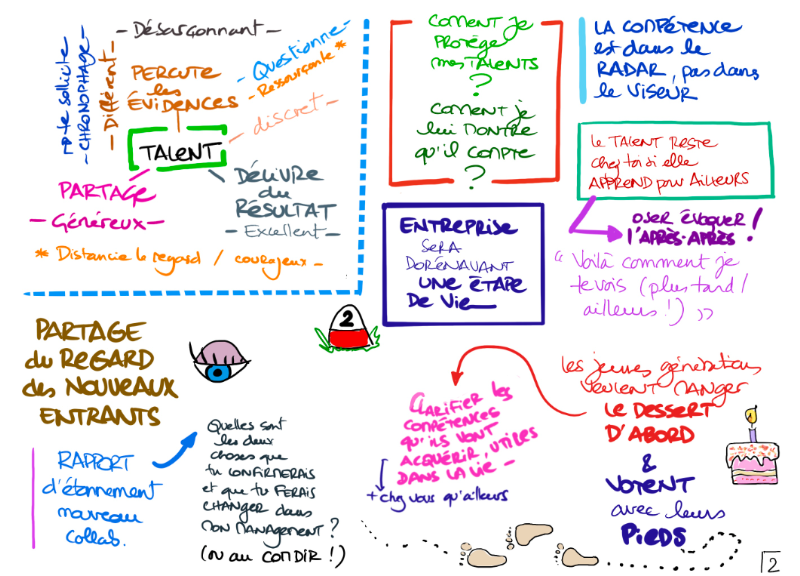 - Désarçonnant -
- pte sollicite
- CHRONOPHAGE -
- Différent -
PERCUTE
les
ÉVIDENCES
- Questionne -
- Ressourçante *
- discret -
TALENT
PARTAGE
- Généreux -
DÉLIVRE
du
RÉSULTAT
- Excellent -
* Distancie le regard / courageux -
COMENT je
PROTÈGE
mes TALENTS
?
COMENT je
lui MONTRE
qu'il COMPTE
?
LA COMPÉTENCE
est dans le
RADAR, pas dans
le VISEUR
Le TALENT RESTE
chez toi si elle
APPREND pour AILLEURS
OSER ÉVOQUER
l'APRÈS-APRÈS !
"Voilà comment je
te vois (plus tard /
ailleurs !) "
ENTREPRISE
SERA
DORÉNAVANT
UNE ÉTAPE
DE Vie
PARTAGE
du REGARD
des NOUVEAUX
ENTRANTS
2
RAPPORT
d'étonnement
nouveau
collab.
Quelles sont
les deux
choses que
tu CONFIRMERAIS
et que tu FERAIS
CHANGER dans
MON MANAGEMENT ?
(ou au COMDIR !)
CLARIFIER les
COMPÉTENCES
qu'ils VONT
ACQUÉRIR, UTILES
DANS LA Vie -
+ chez vous qu'ailleurs
les jeunes générations
VEULENT MANGER
LE DESSERT
D'ABORD
&
VOTENT
avec leurs
PIEDS
2